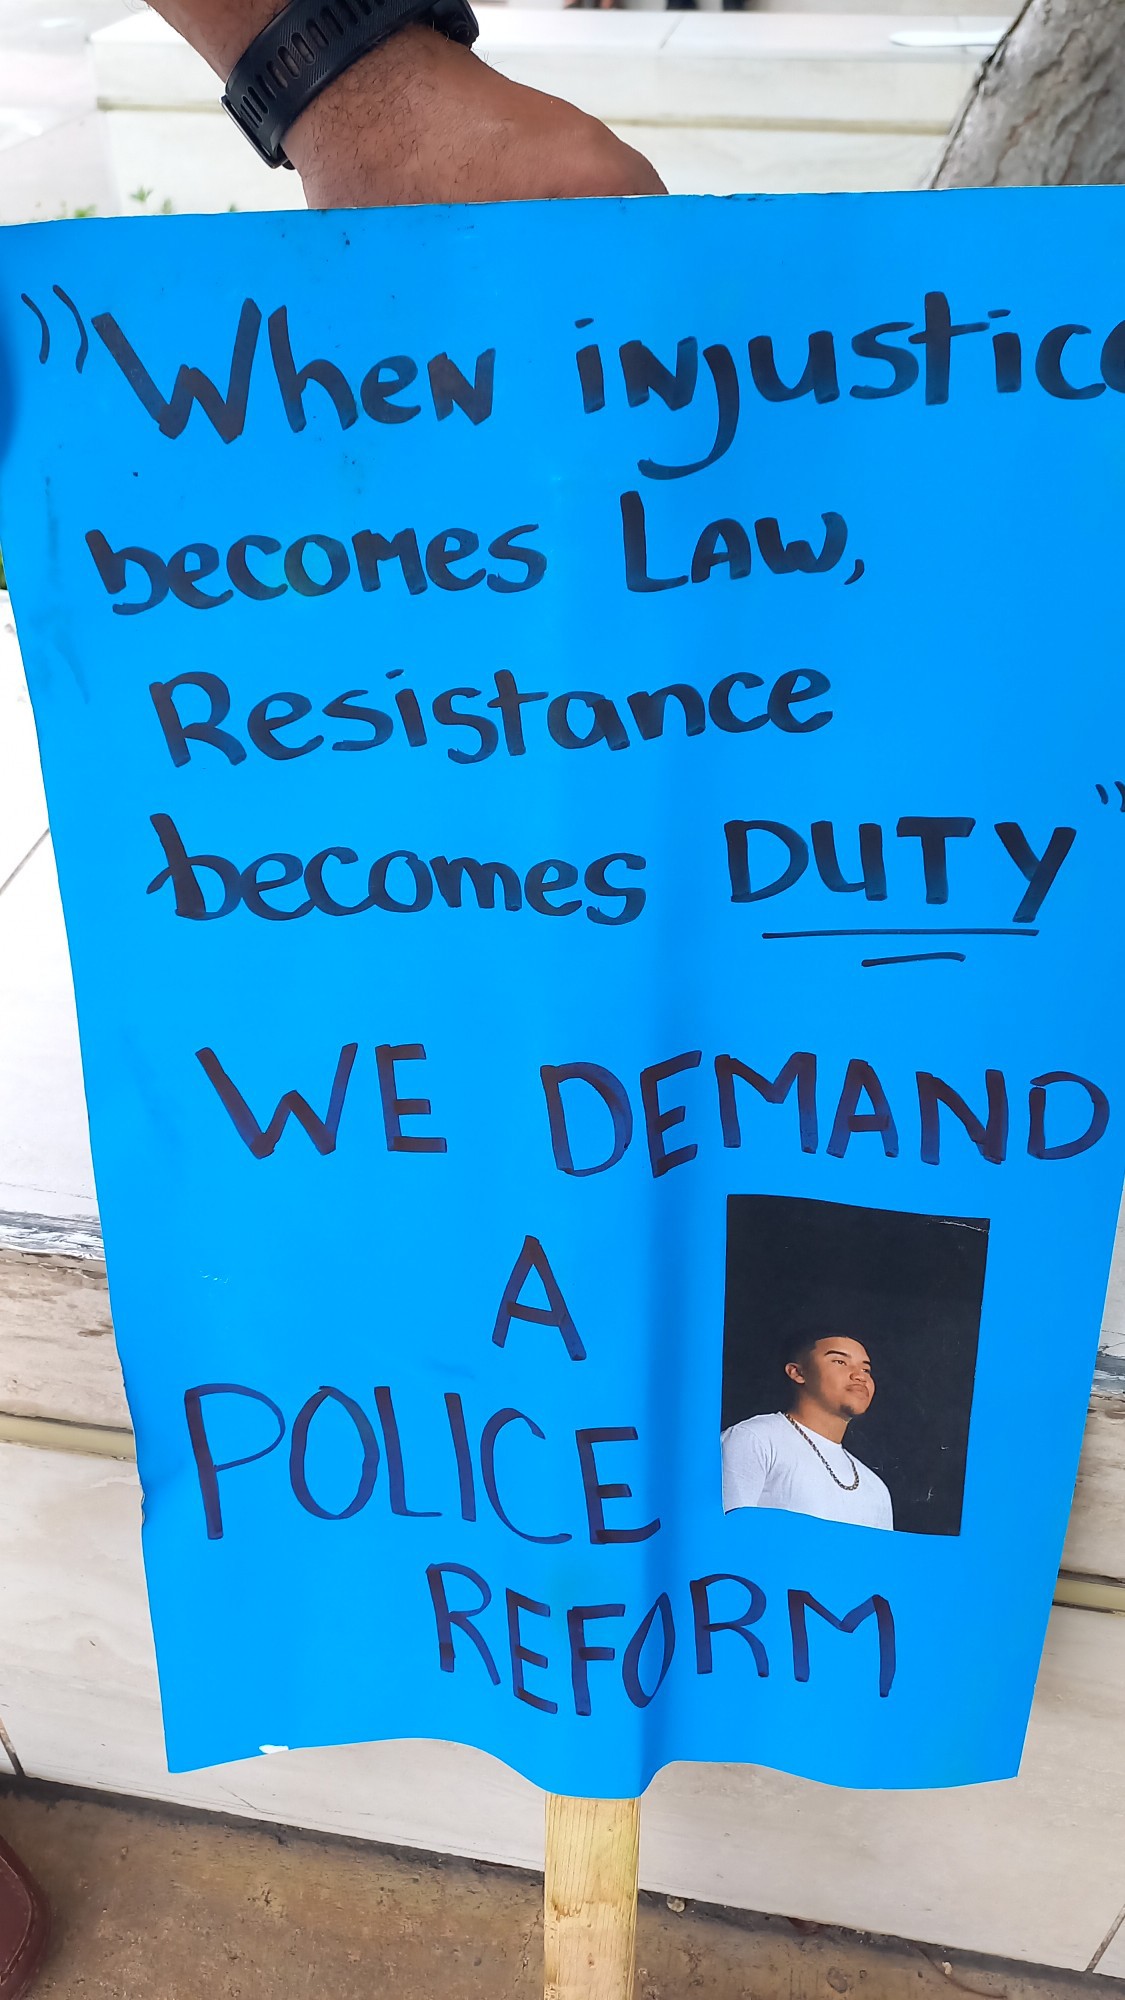 "When injustice
becomes LAW,
Resistance
becomes DUTY"
WE DEMAND
A
POLICE
REFORM